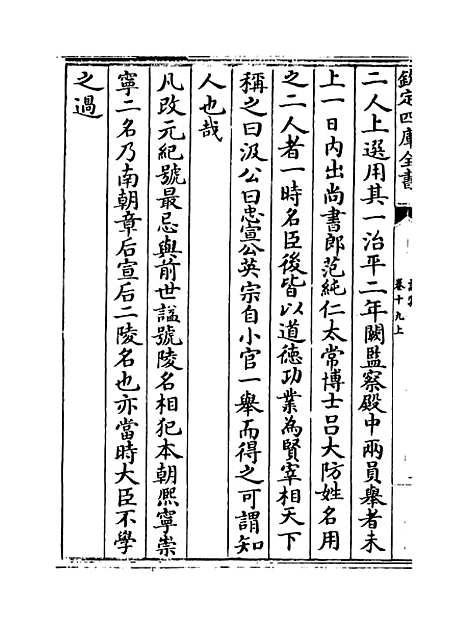 欽定四庫全書
卷十九上
二人上選用其一治平二年闕監察殿中兩員舉者未
上一日内出尚書郎范純仁太常博士呂大防姓名用
之二人者一時名臣後皆以道德功業為賢宰相天下
稱之曰汲公曰忠宣公英宗自小官一舉而得之可謂知
人也哉
凡改元紀號最忌與前世諡號陵名相犯本朝熙寧崇
寧二名乃南朝章后宣后二陵名也亦當時大臣不學
之過